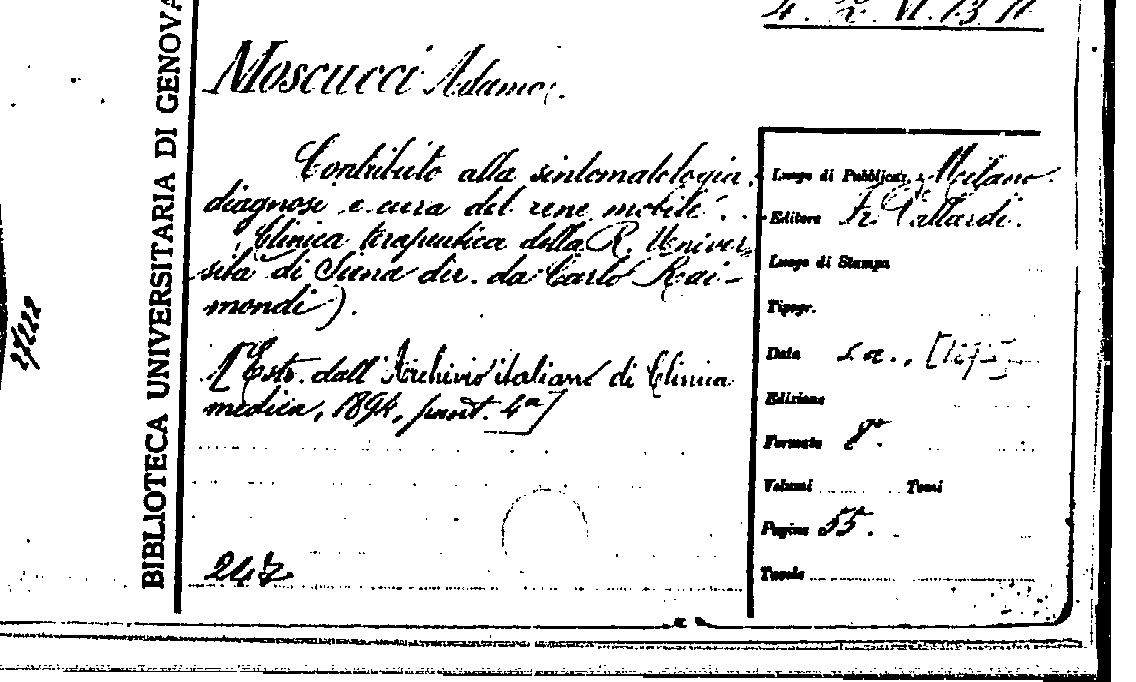 4. Z. VI. 13 11
BIBLIOTECA UNIVERSITARIA DI GENOVA
Moscucci Adamo.
Contributo alla sintomatologia,
diagnosi e cura del rene mobile.
(Clinica terapeutica della R. Univer
sità di Siena dir. da Carlo Rai-
mondi).
[Estr. dall'Archivio italiano di Clinica
medica, 1894, punt. 4a]
247
Luogo di Pubblicaz. Milano.
Editore Fr. Vallardi.
Luogo di Stampa
Tipogr.
Data s. a.,
Edizione
Formato 8°.
Volumi Tomi
Pagine 55.
Tavole